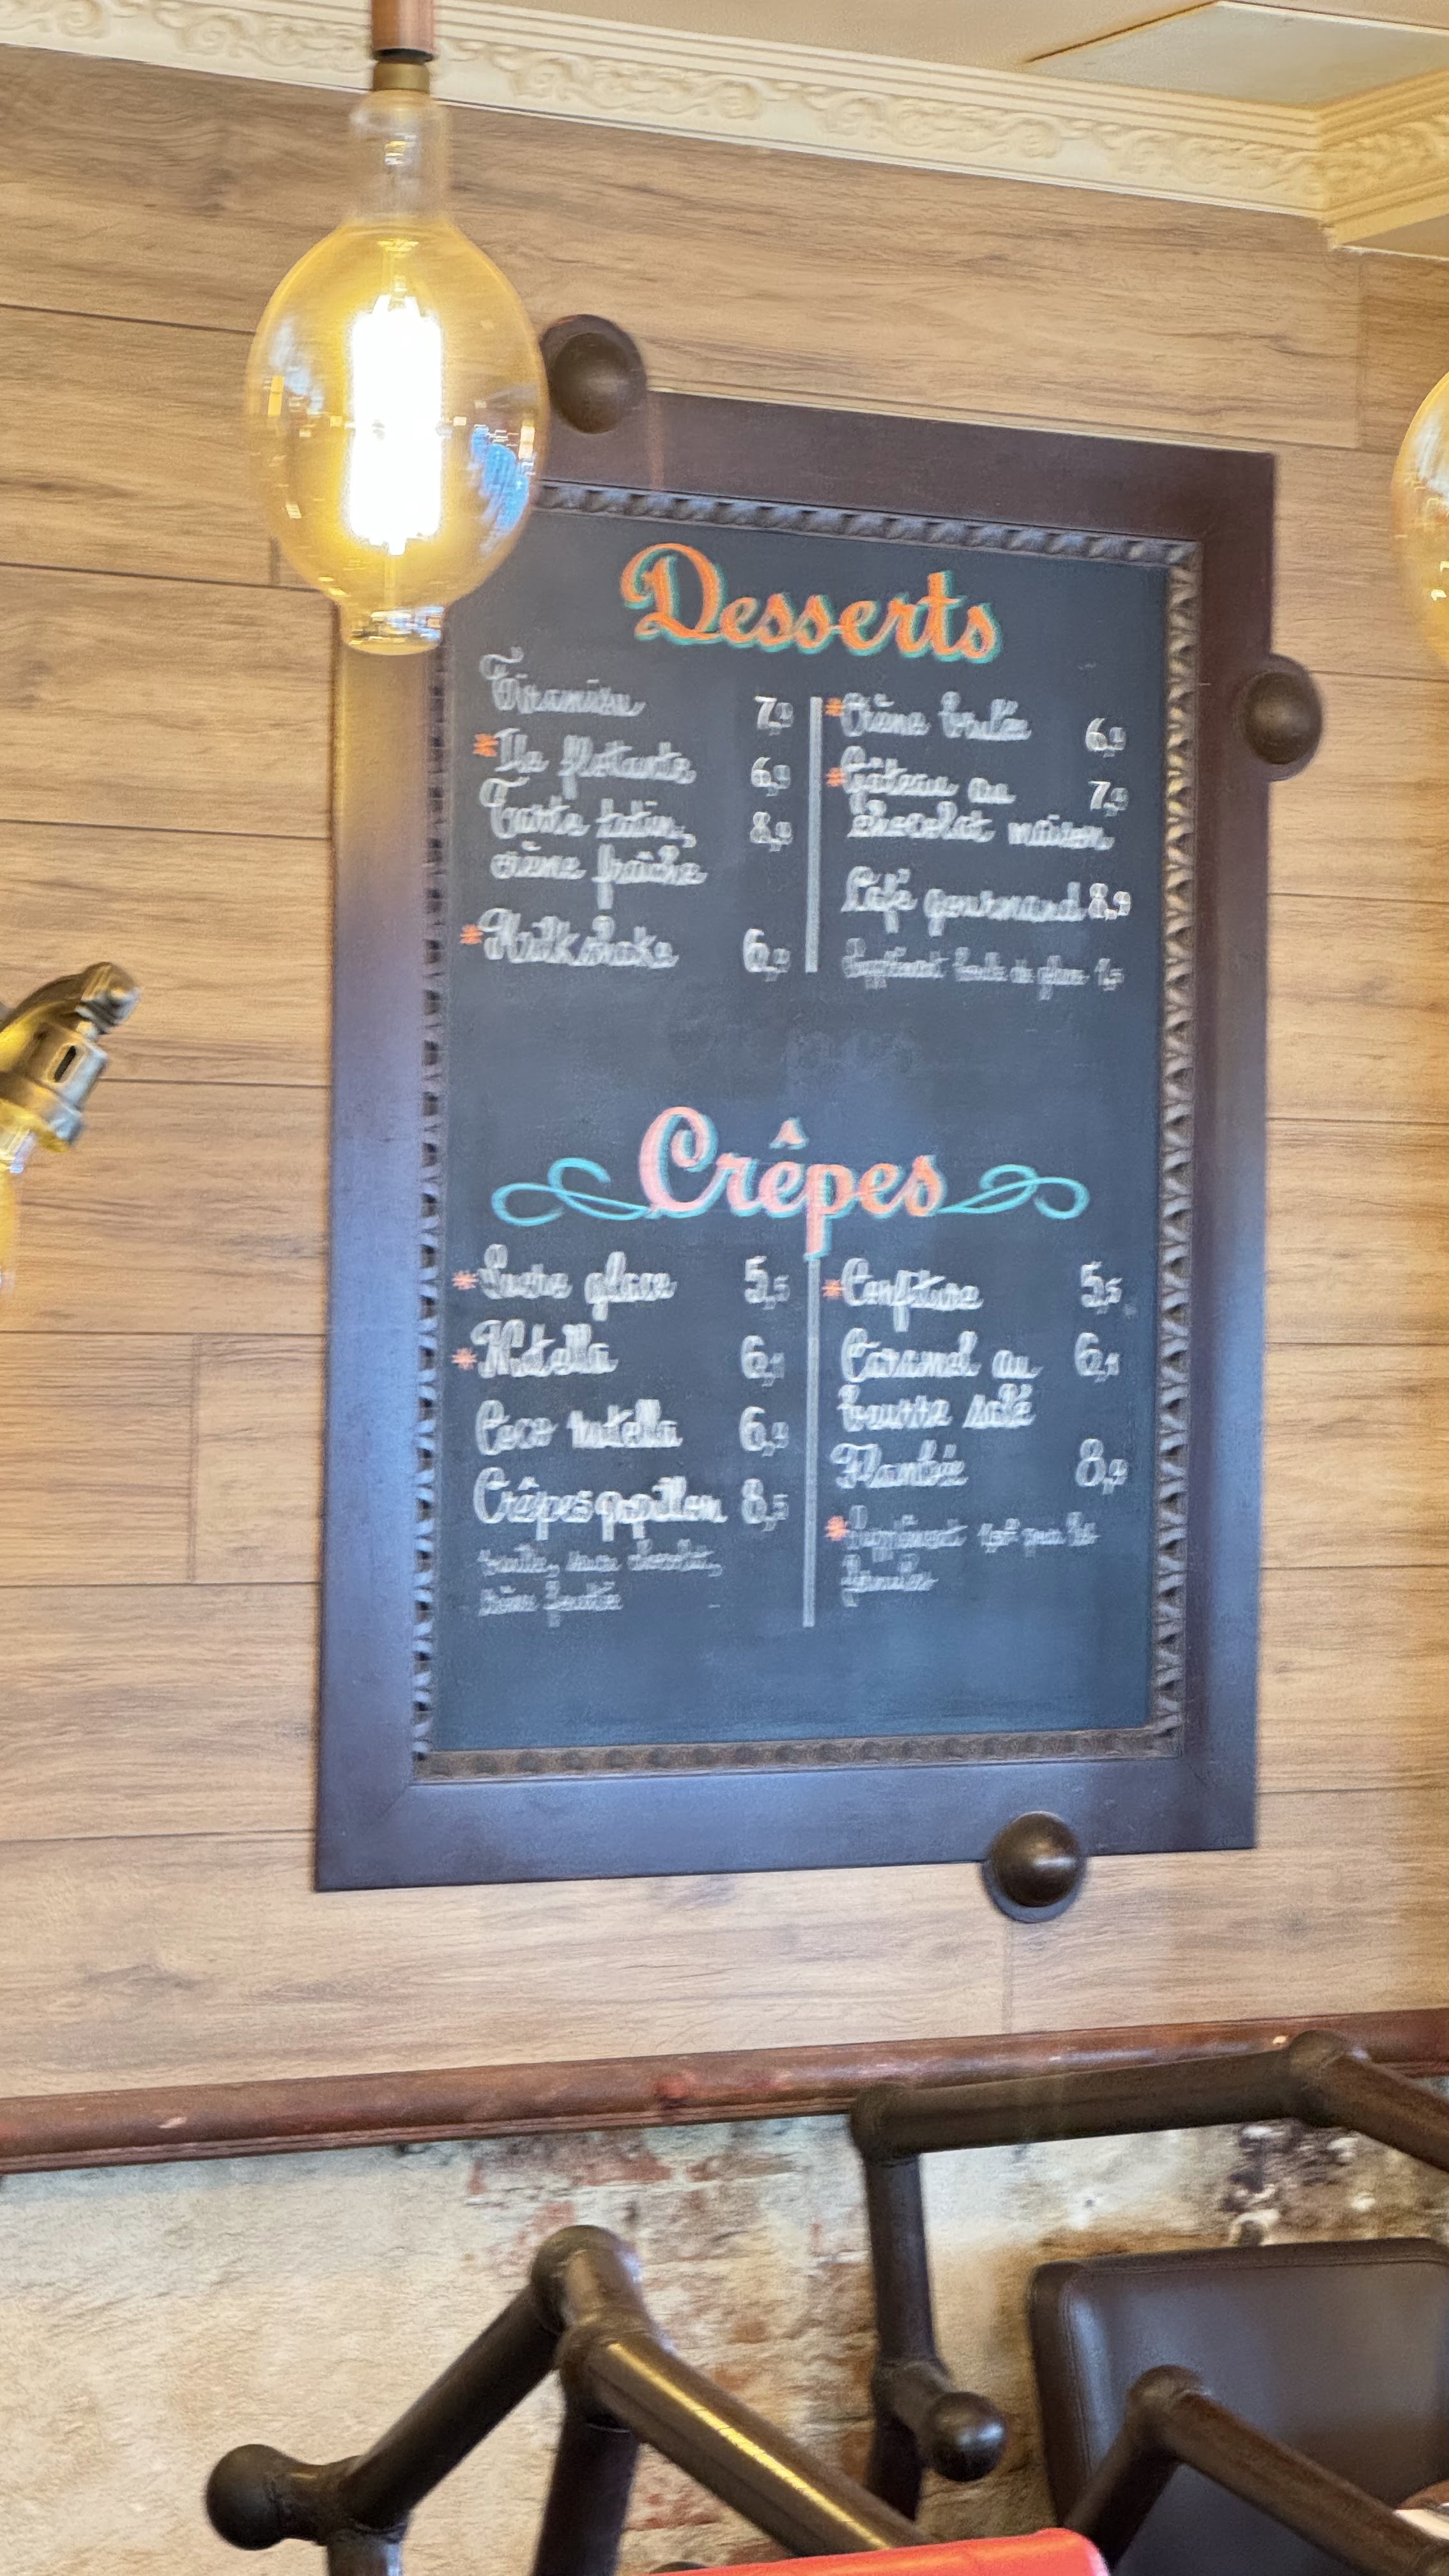 Desserts
Tiramisu 7,9
*Ile flottante 6,9
Tarte tatin, 8,9
crème fraîche
*Milkshake 6,9
*Crème brulée 6,9
*Gâteau au 7,9
chocolat maison
Café gourmand 8,9
Supplément boule de glace 1,5
Crêpes
*Sucre glace 5,5
*Nutella 6,1
Coco nutella 6,9
Crêpes papillon 8,5
sauce chocolat,
crème fouettée
*Confiture 5,5
Caramel au 6,1
beurre salé
Flambée 8,9
*Supplément pour les
formules